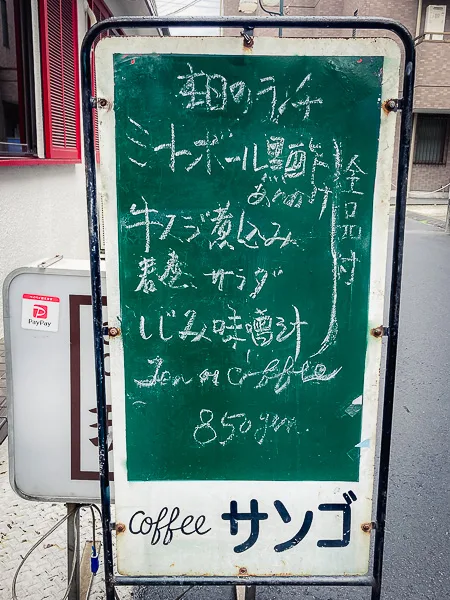 本日のランチ
ミートボール黒酢
あんかけ
牛スジ煮込み
蕎麦サラダ
しじみ味噌汁
全品付
Tea or Coffee
850yen
coffee サンゴ
PayPay